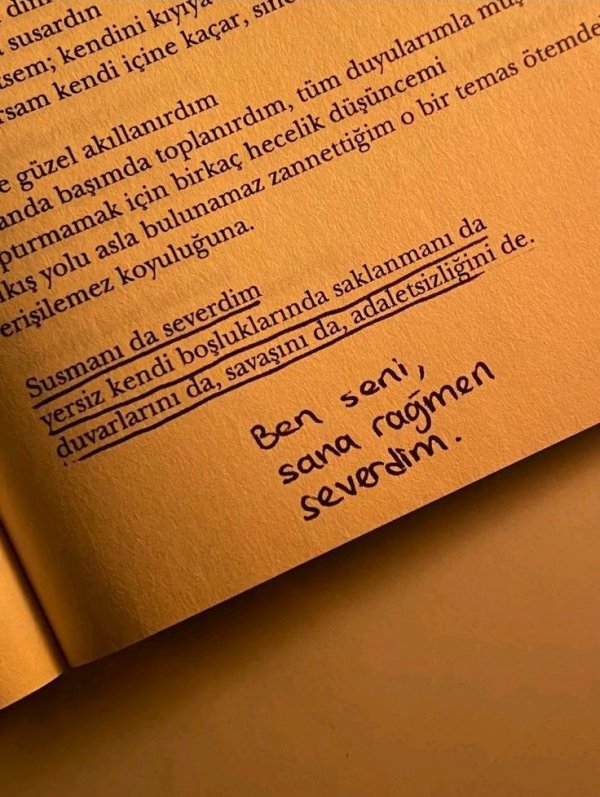 susardın
tsem; kendini kıyıya
rsam kendi içine kaçar,
e güzel akıllanırdım
anda başımda toplanırdım, tüm duyularımla
pturmamak için birkaç hecelik düşüncemi
kış yolu asla bulunamaz zannettiğim o bir temas ötemde
erişilemez koyuluğuna.
Susmanı da severdim
yersiz kendi boşluklarında saklanmanı da
duvarlarını da, savaşını da, adaletsizliğini de.
Ben seni,
sana rağmen
severdim.